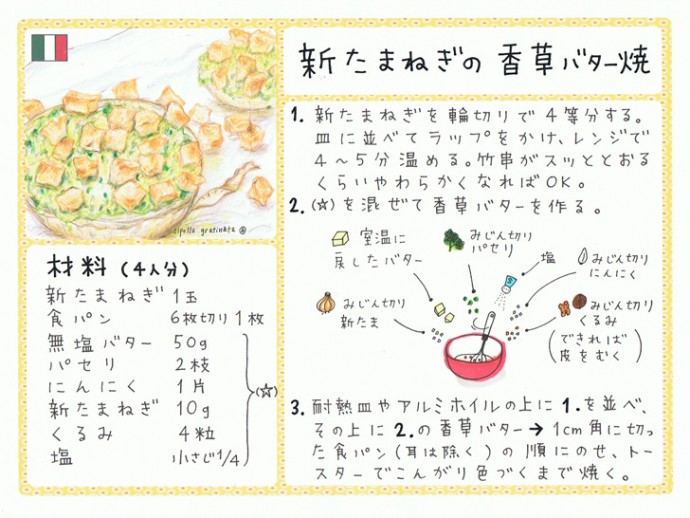 新たまねぎの香草バター焼
cipolla gratinata
材料(4人分)
新たまねぎ 1玉
食パン 6枚切り1枚
無塩バター 50g
パセリ 2枝
にんにく 1片
新たまねぎ 10g
くるみ 4粒
塩 小さじ1/4
(☆)
1. 新たまねぎを輪切りで4等分する。
皿に並べてラップをかけ、レンジで
4〜5分温める。竹串がスッととおる
くらいやわらかくなればOK。
2. (☆)を混ぜて香草バターを作る。
室温に
戻したバター
みじん切り
パセリ
塩
みじん切り
にんにく
みじん切り
新たま
みじん切り
くるみ
(できれば
皮をむく)
3. 耐熱皿やアルミホイルの上に1.を並べ、
その上に2.の香草バター→1cm角に切っ
た食パン(耳は除く)の順にのせ、トー
スターでこんがり色づくまで焼く。